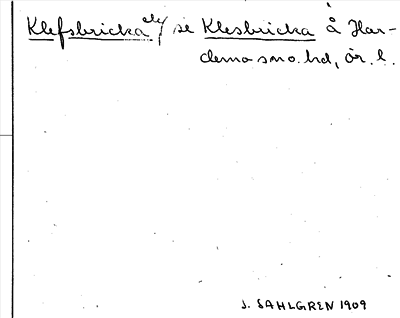 Klefsbricka ely se Klesbricka å Har-
demo sn o. hd, ör. l.
J. SAHLGREN 1909